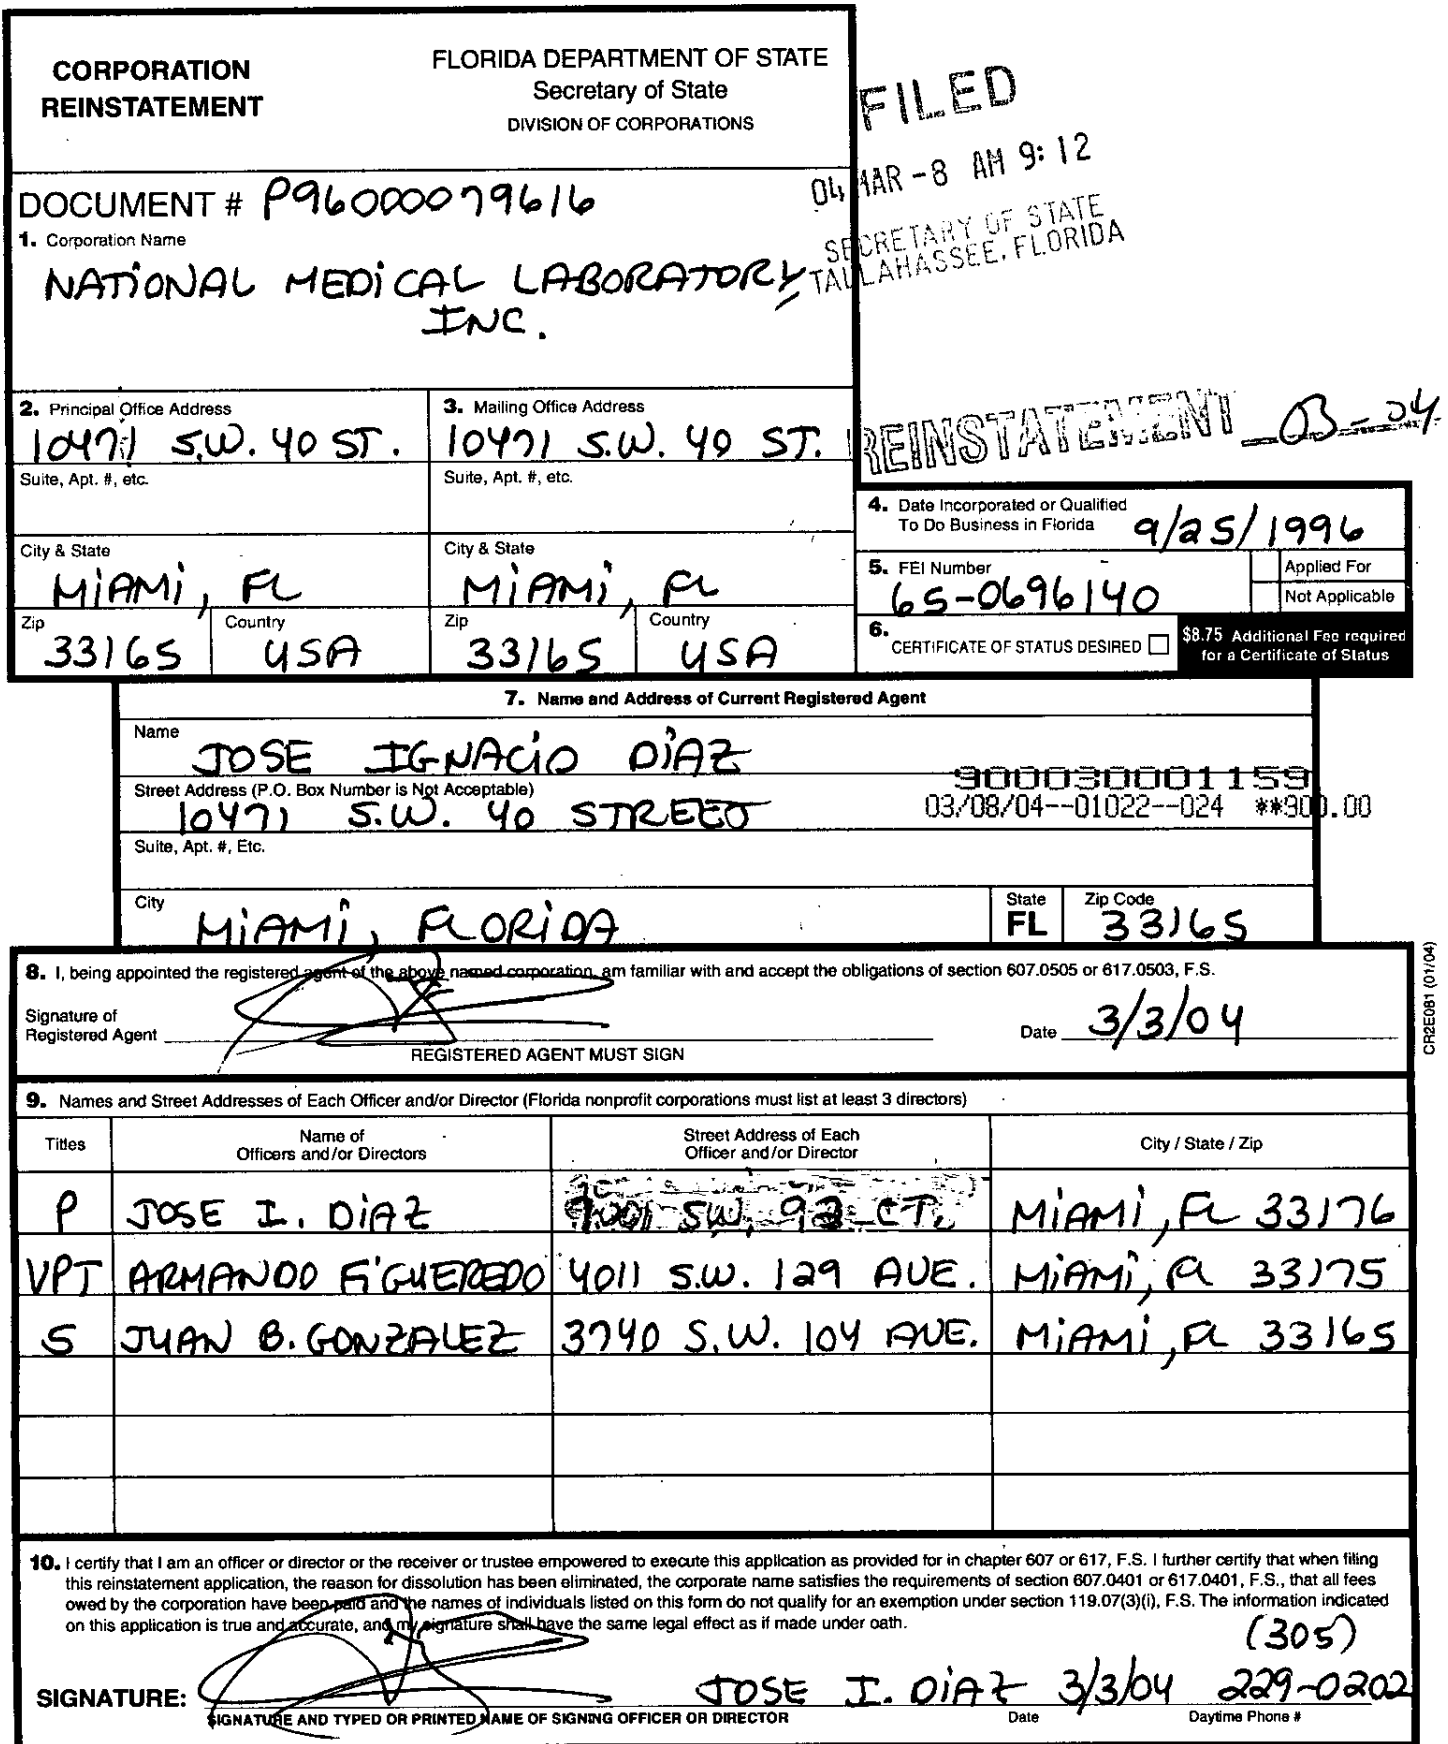 CORPORATION
REINSTATEMENT
FLORIDA DEPARTMENT OF STATE
Secretary of State
DIVISION OF CORPORATIONS
FILED
04 MAR -8 AM 9:12
SECRETARY OF STATE
TALLAHASSEE, FLORIDA
DOCUMENT # P96000079616
1. Corporation Name
NATIONAL MEDICAL LABORATORY
INC.
REINSTATEMENT 03-04
2. Principal Office Address
10471 S.W. 40 ST.
3. Mailing Office Address
10471 S.W. 40 ST.
Suite, Apt. #, etc.
Suite, Apt. #, etc.
City & State
MIAMI, FL
City & State
MIAMI, FL
Zip
33165
Country
USA
Zip
33165
Country
USA
4. Date Incorporated or Qualified
To Do Business in Florida 9/25/1996
5. FEI Number
65-0696140
Applied For
Not Applicable
6. CERTIFICATE OF STATUS DESIRED
$8.75 Additional Fee required
for a Certificate of Status
7. Name and Address of Current Registered Agent
Name
JOSE IGNACIO DIAZ
Street Address (P.O. Box Number is Not Acceptable)
10471 S.W. 40 STREET
900030001159
03/08/04--01022--024 **300.00
Suite, Apt. #, Etc.
City
MIAMI, FLORIDA
State
FL
Zip Code
33165
8. I, being appointed the registered agent of the above named corporation, am familiar with and accept the obligations of section 607.0505 or 617.0503, F.S.
Signature of
Registered Agent
REGISTERED AGENT MUST SIGN
Date 3/3/04
CR2E081 (01/04)
9. Names and Street Addresses of Each Officer and/or Director (Florida nonprofit corporations must list at least 3 directors)
Titles
Name of
Officers and/or Directors
Street Address of Each
Officer and/or Director
City / State / Zip
P JOSE I. DIAZ 9001 S.W. 93 CT. MIAMI, FL 33176
VPT ARMANDO FIGUEREDO 4011 S.W. 129 AVE. MIAMI, FL 33175
S JUAN B. GONZALEZ 3740 S.W. 104 AVE. MIAMI, FL 33165
10. I certify that I am an officer or director or the receiver or trustee empowered to execute this application as provided for in chapter 607 or 617, F.S. I further certify that when filing
this reinstatement application, the reason for dissolution has been eliminated, the corporate name satisfies the requirements of section 607.0401 or 617.0401, F.S., that all fees
owed by the corporation have been paid and the names of individuals listed on this form do not qualify for an exemption under section 119.07(3)(i), F.S. The information indicated
on this application is true and accurate, and my signature shall have the same legal effect as if made under oath.
(305)
SIGNATURE: JOSE I. DIAZ 3/3/04 229-0202
SIGNATURE AND TYPED OR PRINTED NAME OF SIGNING OFFICER OR DIRECTOR
Date
Daytime Phone #